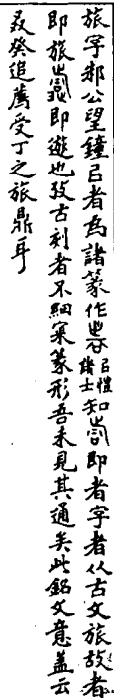 旅字邾公望鐘㠯者為諸篆作㫺㠯樂諸士知即者字者从古文旅故者
即旅即遊也攷古刻者不細案篆形吾未見其通矣此銘文意蓋云
癸追薦受丁之旅鼎耳